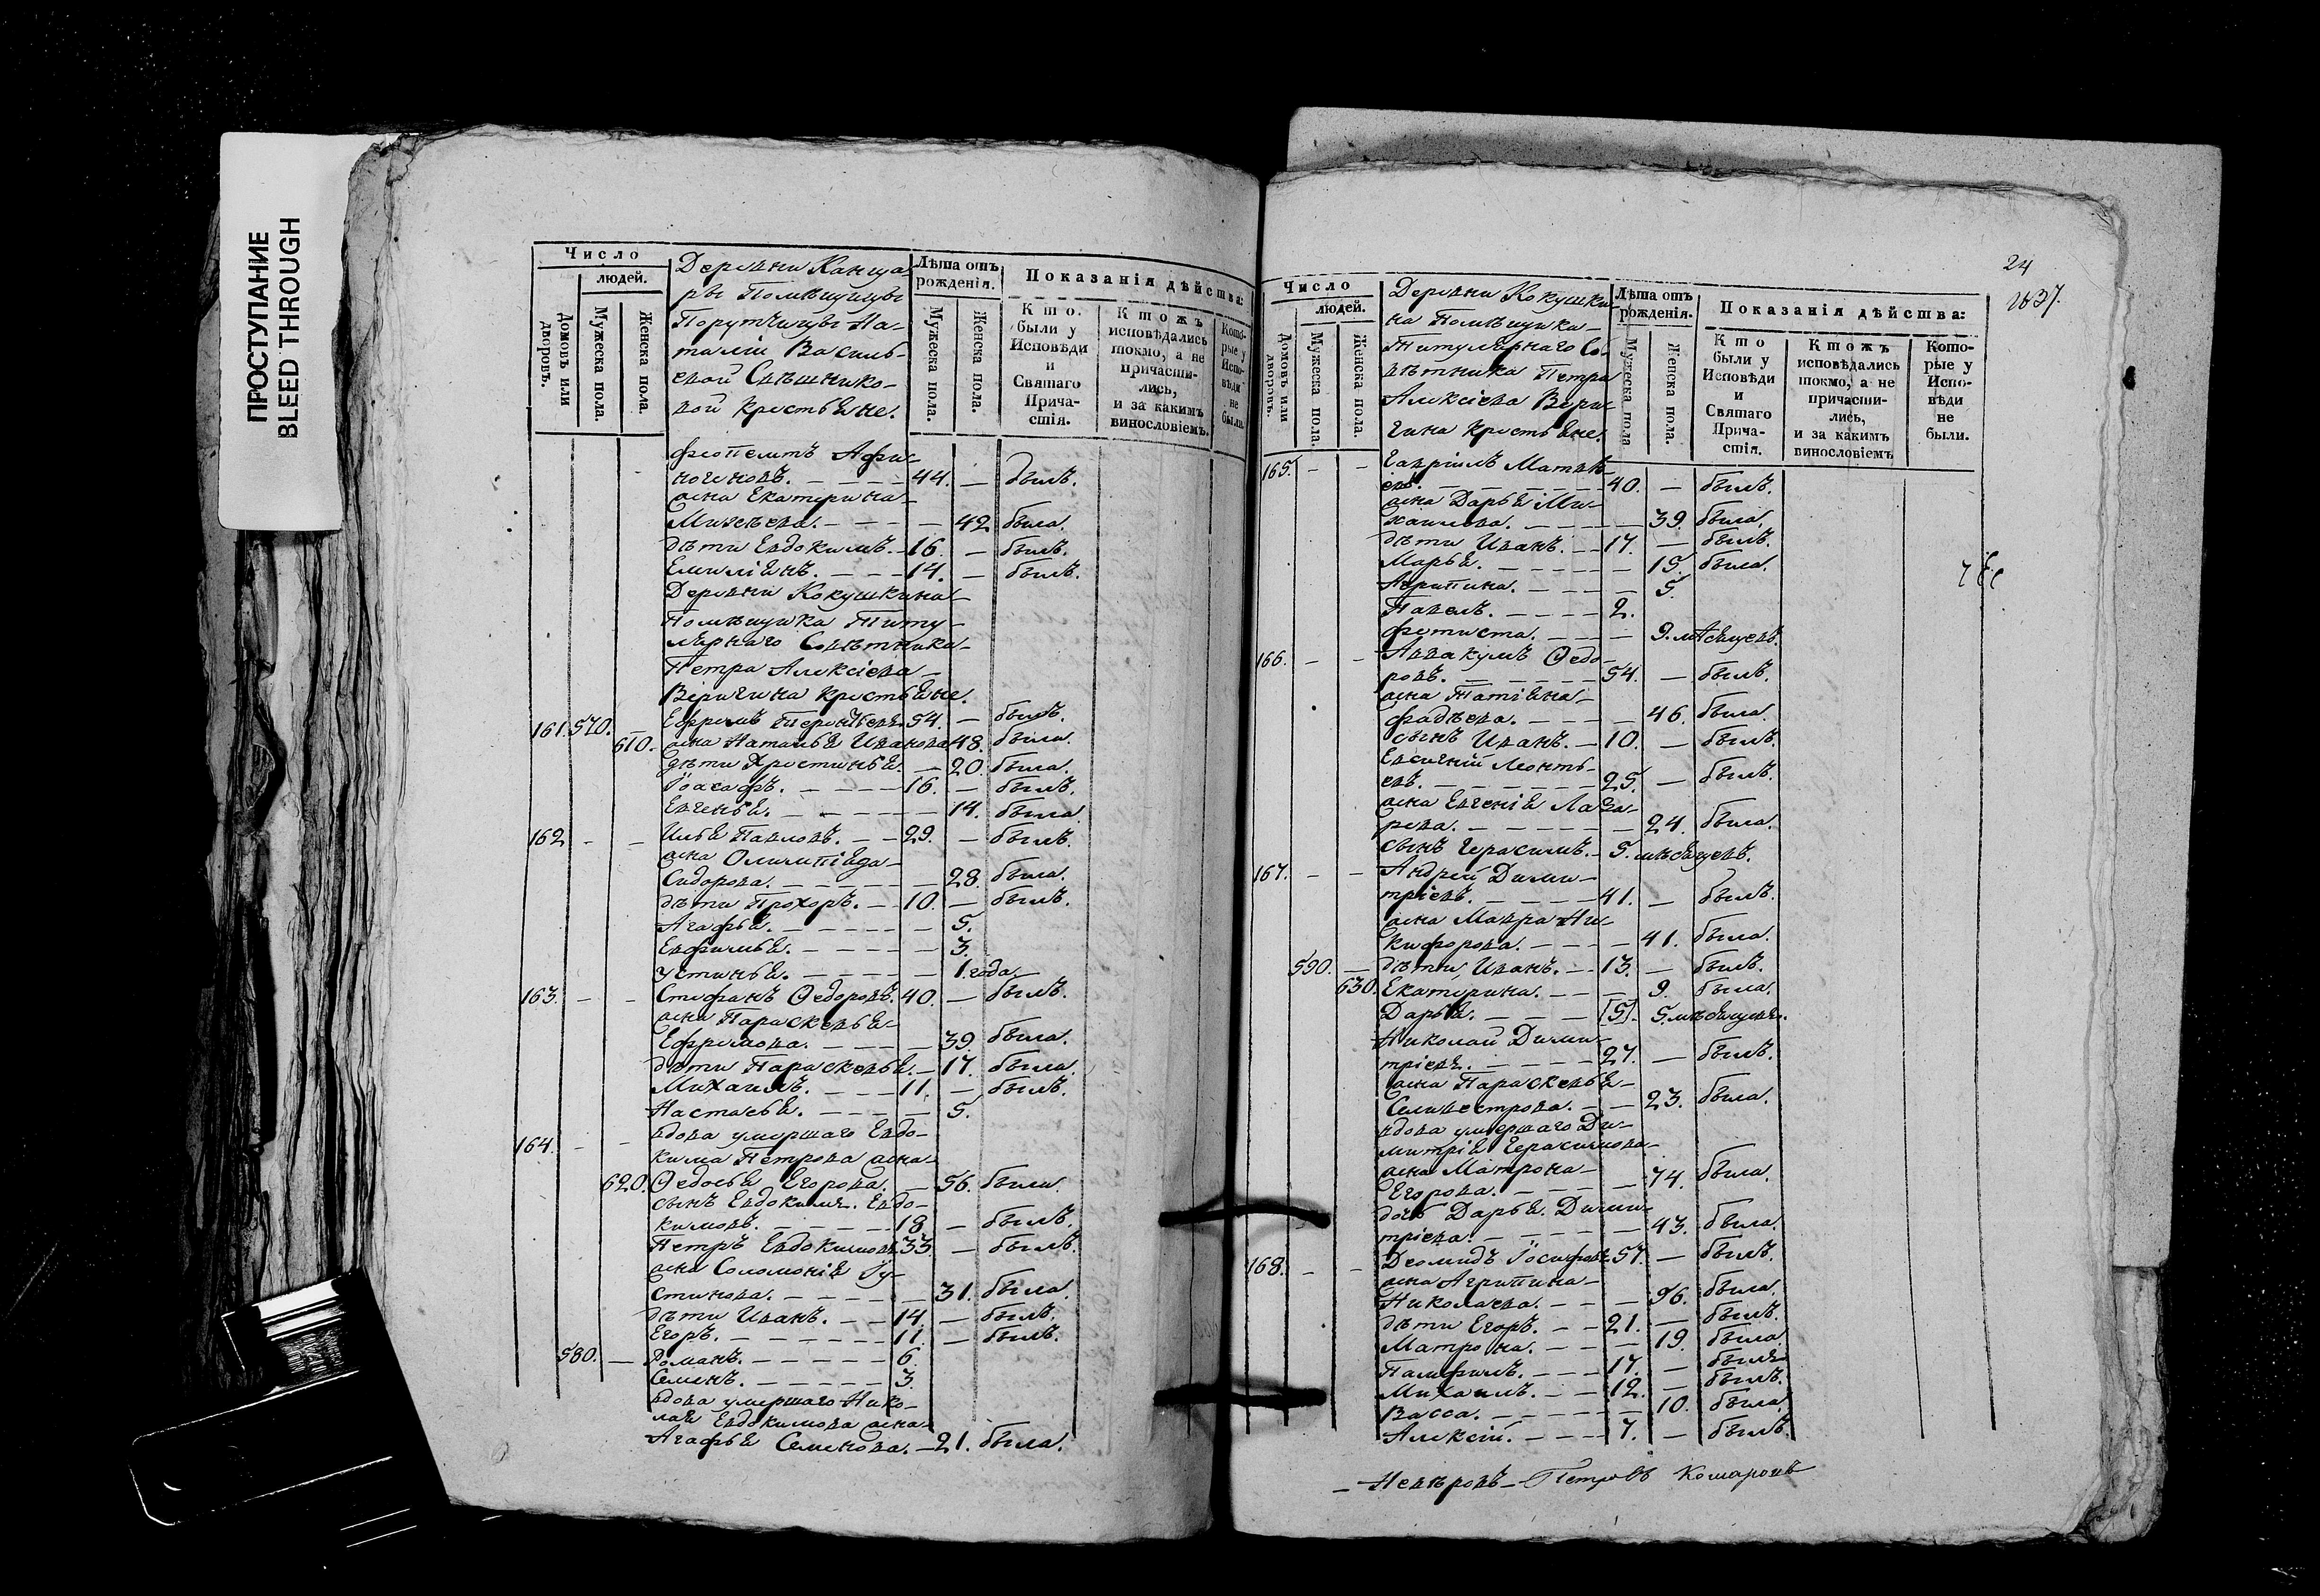 ПРОСТУПАНИЕ
BLEED THROUGH
Число
людей.
Домовъ или дворовъ.
Мужеска пола.
Женска пола.
Деревни Канца-
ры Помѣщицы
Порутчицы На-
талiи Василь-
евой Свѣшнико-
вой крестьяне.
Лѣта отъ рожденiя.
Мужеска пола.
Женска пола.
Показанiя дѣйства:
Кто были у Исповѣди и Святаго Прича-стiя.
Ктожъ исповѣдались токмо, а не причасти-лись, и за какимъ винословiемъ.
Кото-рые у Испо-вѣди не были.
Афи-
ногеновъ. 44. — былъ.
жена Екатерина
Михеева. — 42 была.
дѣти Евдокимъ. 16. — былъ.
Емилiянъ. 14. — былъ.
Деревни Кокушкина
Помѣщика Титу-
лярнаго Совѣтника
Петра Алексiева
Веригина крестьяне.
161. 570. Ефремъ 54. — былъ.
610. жена Наталья Иванова 48. была.
дѣти Христинья. — 20. была.
Iоасафъ. 16. — былъ.
Евгенья. — 14. была.
162 - - Илья Павловъ. 29. — былъ.
жена Олимпiяда
Сидорова. — 28. была.
дѣти Прохоръ. 10. — былъ.
Агафья. — 5.
Евфимья. — 3.
Устинья. — 1. года.
163. - - Стефанъ Ѳедоровъ. 40. — былъ.
жена Параскевья
Ефремова. — 39. была.
дѣти Параскевья. — 17. была.
Михаилъ. 11. — былъ.
Настасья. — 5.
164. - - вдова умершаго Евдо-
кима Петрова жена
620. Ѳедосья Егорова. — 56. была.
сынъ Евдокимъ. Евдо-
кимовъ. 18 — былъ.
Петръ Евдокимовъ 33 — былъ.
жена Соломонiя Iу-
стинова. — 31. была.
дѣти Иванъ. 14. — былъ.
Егоръ. 11. — былъ.
580. — Романъ. 6.
Семенъ. 3.
вдова умершаго Нико-
лая Евдокимова жена
Агафья Семенова. — 21. была.
24
1837.
Число
людей.
Домовъ или дворовъ.
Мужеска пола.
Женска пола.
Деревни Кокушки-
на Помѣщика
Титулярнаго Со-
вѣтника Петра
Алексiева Вери-
гина крестьяне.
Лѣта отъ рожденiя.
Мужеска пола
Женска пола.
Показанiя дѣйства:
Кто были у Исповѣди и Святаго Прича-стiя.
Ктожъ исповѣдались токмо, а не причасти-лись, и за какимъ винословiемъ
Кото-рые у Испо-вѣди не были.
165. - - Гаврiилъ Матвѣ-
евъ. 40. — былъ.
жена Дарья Ми-
хаилова. — 39. была.
дѣти Иванъ. 17. — былъ.
Марья. — 15. была.
Агрипина. — 5.
Павелъ. 2.
Фетиста. — 9. мѣсяцевъ.
166. - - Аввакумъ Ѳедо-
ровъ. 54. — былъ.
жена Татiяна
Фадѣева. — 46. была.
сынъ Иванъ. 10. — былъ.
Евсигнiй Леонть-
евъ. 25. — былъ.
жена Евгенiя Лаза-
рева. — 24. была.
сынъ Герасимъ. 5. мѣсяцевъ.
167. - - Андрей Дими-
трiевъ. 41. — былъ.
жена Мавра Ни-
кифорова. — 41. была.
590. — дѣти, Иванъ. 13. — былъ.
630. Екатерина. — 9. была.
Дарья. [5]. 5. мѣсяцевъ.
Николай Дими-
трiевъ. 27. — былъ.
жена Параскевья
Селивестрова. — 23. была.
вдова умершаго Ди-
митрiя Герасимова
жена Матрона
Егорова. — 74. была.
дочь Дарья. Дими-
трiева. — 43. была.
168. - - Деомидъ Iосифовъ 57. — былъ.
жена Агрипина
Николаева. — 56. была.
дѣти Егоръ. 21. — былъ.
Матрона. — 19. была
Памфилъ. 17. — былъ.
Михаилъ. 12. — былъ.
Васса. — 10. была.
Алексiй. 7. — былъ.
Петровъ Комаровъ